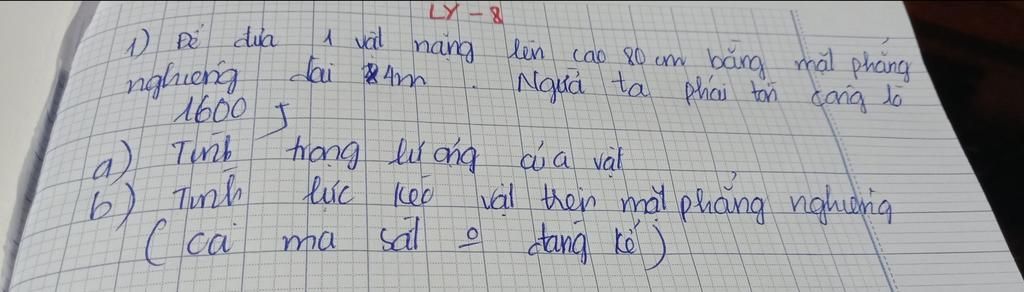 LY - 8
1) Để đưa 1 vật nặng lên cao 80 cm bằng mặt phẳng
nghiêng dài 4m. Người ta phải tốn công là
1600 J
a) Tính trọng lượng của vật
b) Tính lực kéo vật trên mặt phẳng nghiêng
(coi ma sát o đáng kể)